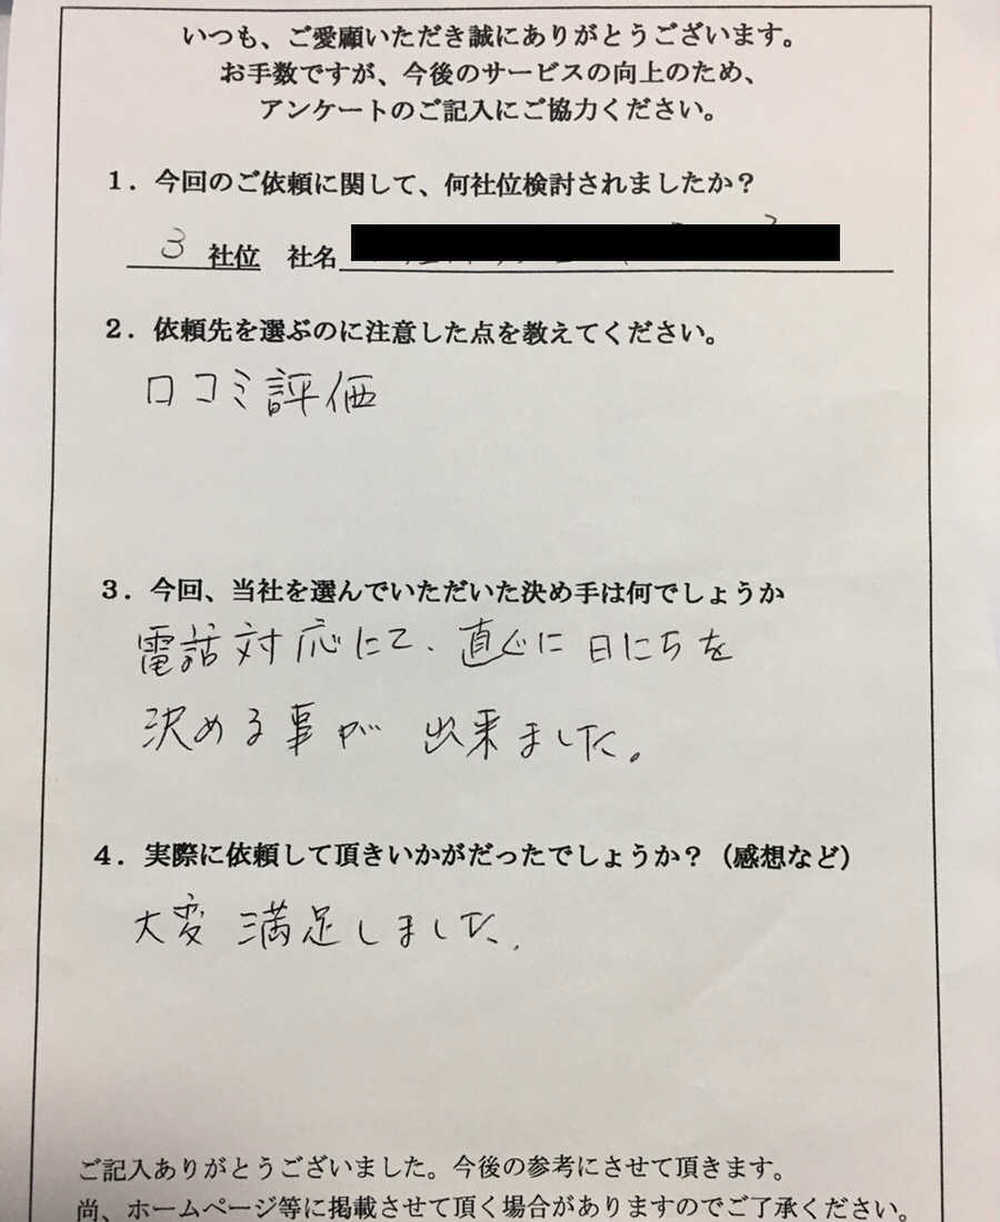 いつも、ご愛顧いただき誠にありがとうございます。
お手数ですが、今後のサービスの向上のため、
アンケートのご記入にご協力ください。
１．今回のご依頼に関して、何社位検討されましたか？
3 社位 社名
２．依頼先を選ぶのに注意した点を教えてください。
口コミ評価
３．今回、当社を選んでいただいた決め手は何でしょうか
電話対応にて、直ぐに日にちを
決める事が出来ました。
４．実際に依頼して頂きいかがだったでしょうか？（感想など）
大変満足しました。
ご記入ありがとうございました。今後の参考にさせて頂きます。
尚、ホームページ等に掲載させて頂く場合がありますのでご了承ください。